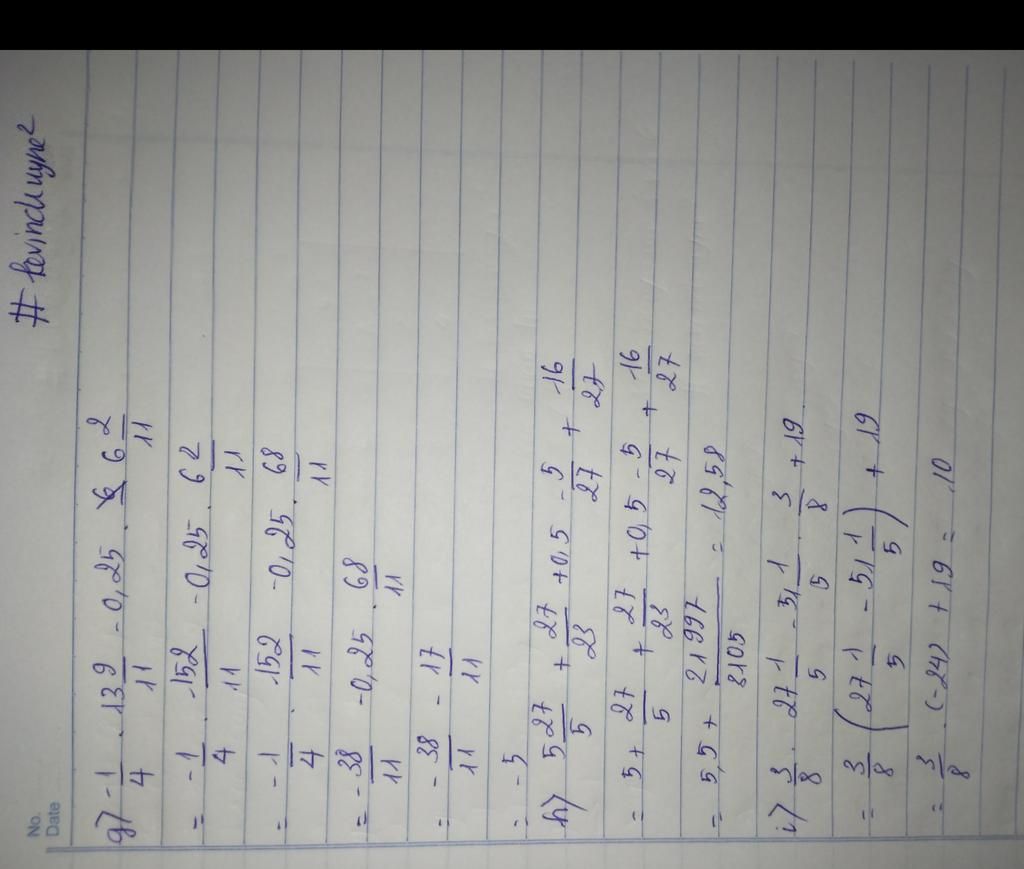 # kevinchuyne²
No.
Date
g) -1/4 . 13 9/11 - 0,25 . 6 2/11
= -1/4 . 152/11 - 0,25 . 6 2/11
= -1/4 . 152/11 - 0,25 . 68/11
= -38/11 - 0,25 . 68/11
= -38/11 - 17/11
= -5
h) 5 27/5 + 27/23 + 0,5 - 5/27 + 16/27
= 5 + 27/5 + 27/23 + 0,5 - 5/27 + 16/27
= 5,5 + 21997/3105 = 12,58
i) 3/8 . 27 1/5 - 51 1/5 . 3/8 + 19
= 3/8 (27 1/5 - 51 1/5) + 19
= 3/8 . (-24) + 19 = 10